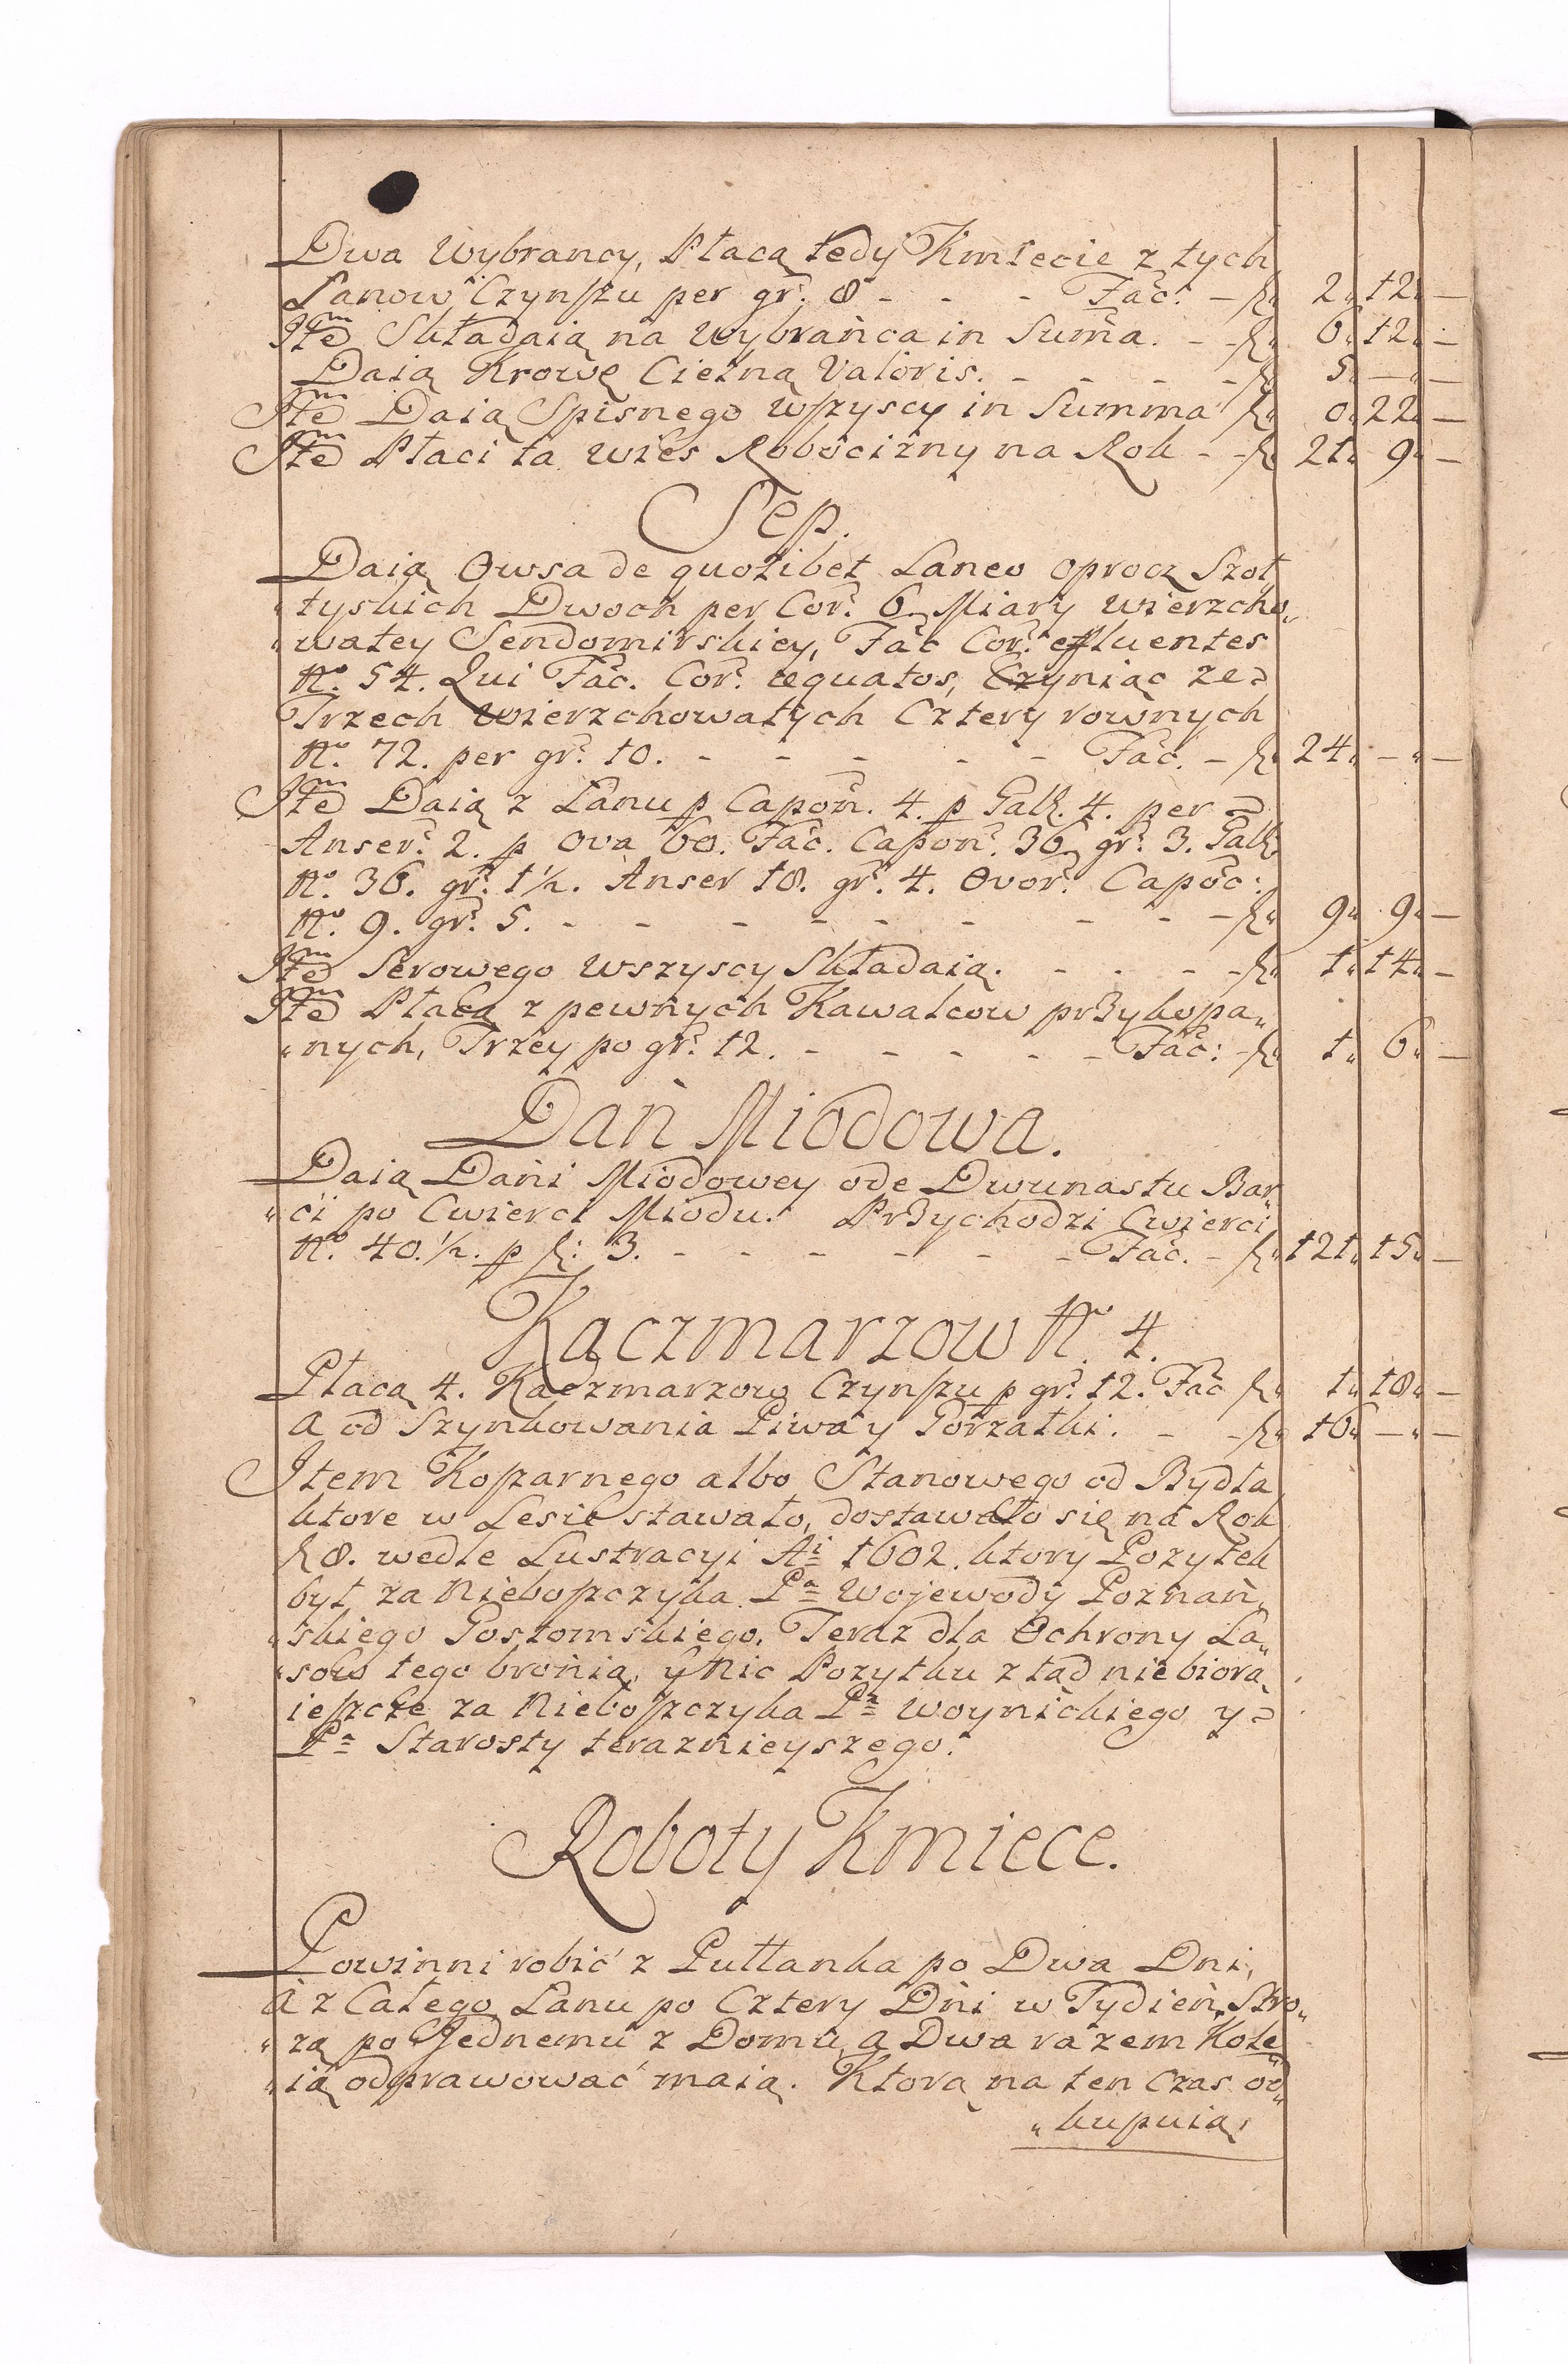 Dwa Wybrancy, Płacą tedy Kmiecie z tych
Łanow Czynszu per gr. 8 - - - Fac. - fl. 2. 12. -
Itẽ Składaią na Wybrańca in Suma. - - fl. 6. 12. -
Daią Krowę Cielną Valoris. - - - - fl. 5. - -
Itẽ Daią Spisnego wszyscy in Summa fl. 0. 22. -
Itẽ Płaci ta wieś Robocizny na Rok - - fl. 21. 9. -
Sep.
Daią Owsa de quolibet Laneo oprocz Szoł„
„tyskich Dwoch per Cor. 6. Miary wierzcho„
„watey Sendomirskiey, Fac Cor. effluentes
No. 54. Qui Fac. Cor. æquatos, Czyniąc ze=
Trzech wierzchowatych Cztery rownych
No. 72. per gr. 10. - - - - - Fac. - fl. 24. - -
Itẽ Daią z Łanu p Capon. 4. p Gall. 4. per =
Anser. 2. p Ova 60. Fac. Capon. 36. gr. 3. Gall.
No. 36. gr. 1½. Anser 18. gr. 4. Ovor. Capoc:
No. 9. gr. 5. - - - - - - - - fl. 9. 9. -
Itẽ Serowego Wszyscy Składaią. - - - - fl. 1. 14. -
Itẽ Płacą z pewnych Kawalcow przykopa„
„nych, Trzey po gr. 12. - - - - - Fac: - fl. 1. 6. -
Dań Miodowa.
Daią Dani Miodowey ode Dwunastu Bar„
„ci po Cwierci Miodu. Przychodzi Cwierci
No. 40.½. p fl. 3. - - - - - - Fac. - fl. 121. 15. -
Kaczmarzow No. 4.
Płacą 4. Kaczmarzow Czynszu p gr. 12. Fac fl. 1. 18. -
A od Szynkowania Piwa y Gorzałki. - - fl. 16. - -
Item Koszarnego albo Stanowego od Bydła
ktore w Lesie stawało, dostawało się na Rok
fl 8. wedle Lustracyi Ai 1602. ktory Pozytek
był za Nieboszczyka Pa Wojewody Poznań„
„skiego Gostomskiego. Teraz dla Ochrony La„
„sow tego bronią, y Nic Pozytku ztąd niebiorą,
ieszcze za Nieboszczyka Pa Woynickiego y=
Pa Starosty teraznieyszego.
Roboty Kmiece.
Powinni robić z Pułłanka po Dwa Dni,
A z Całego Łanu po Cztery Dni w Tydień, Stro„
„zą po Jednemu z Domu, a Dwa razem Kole„
„ią odprawować maią. Ktorą na ten Czas od„
„kupuią,